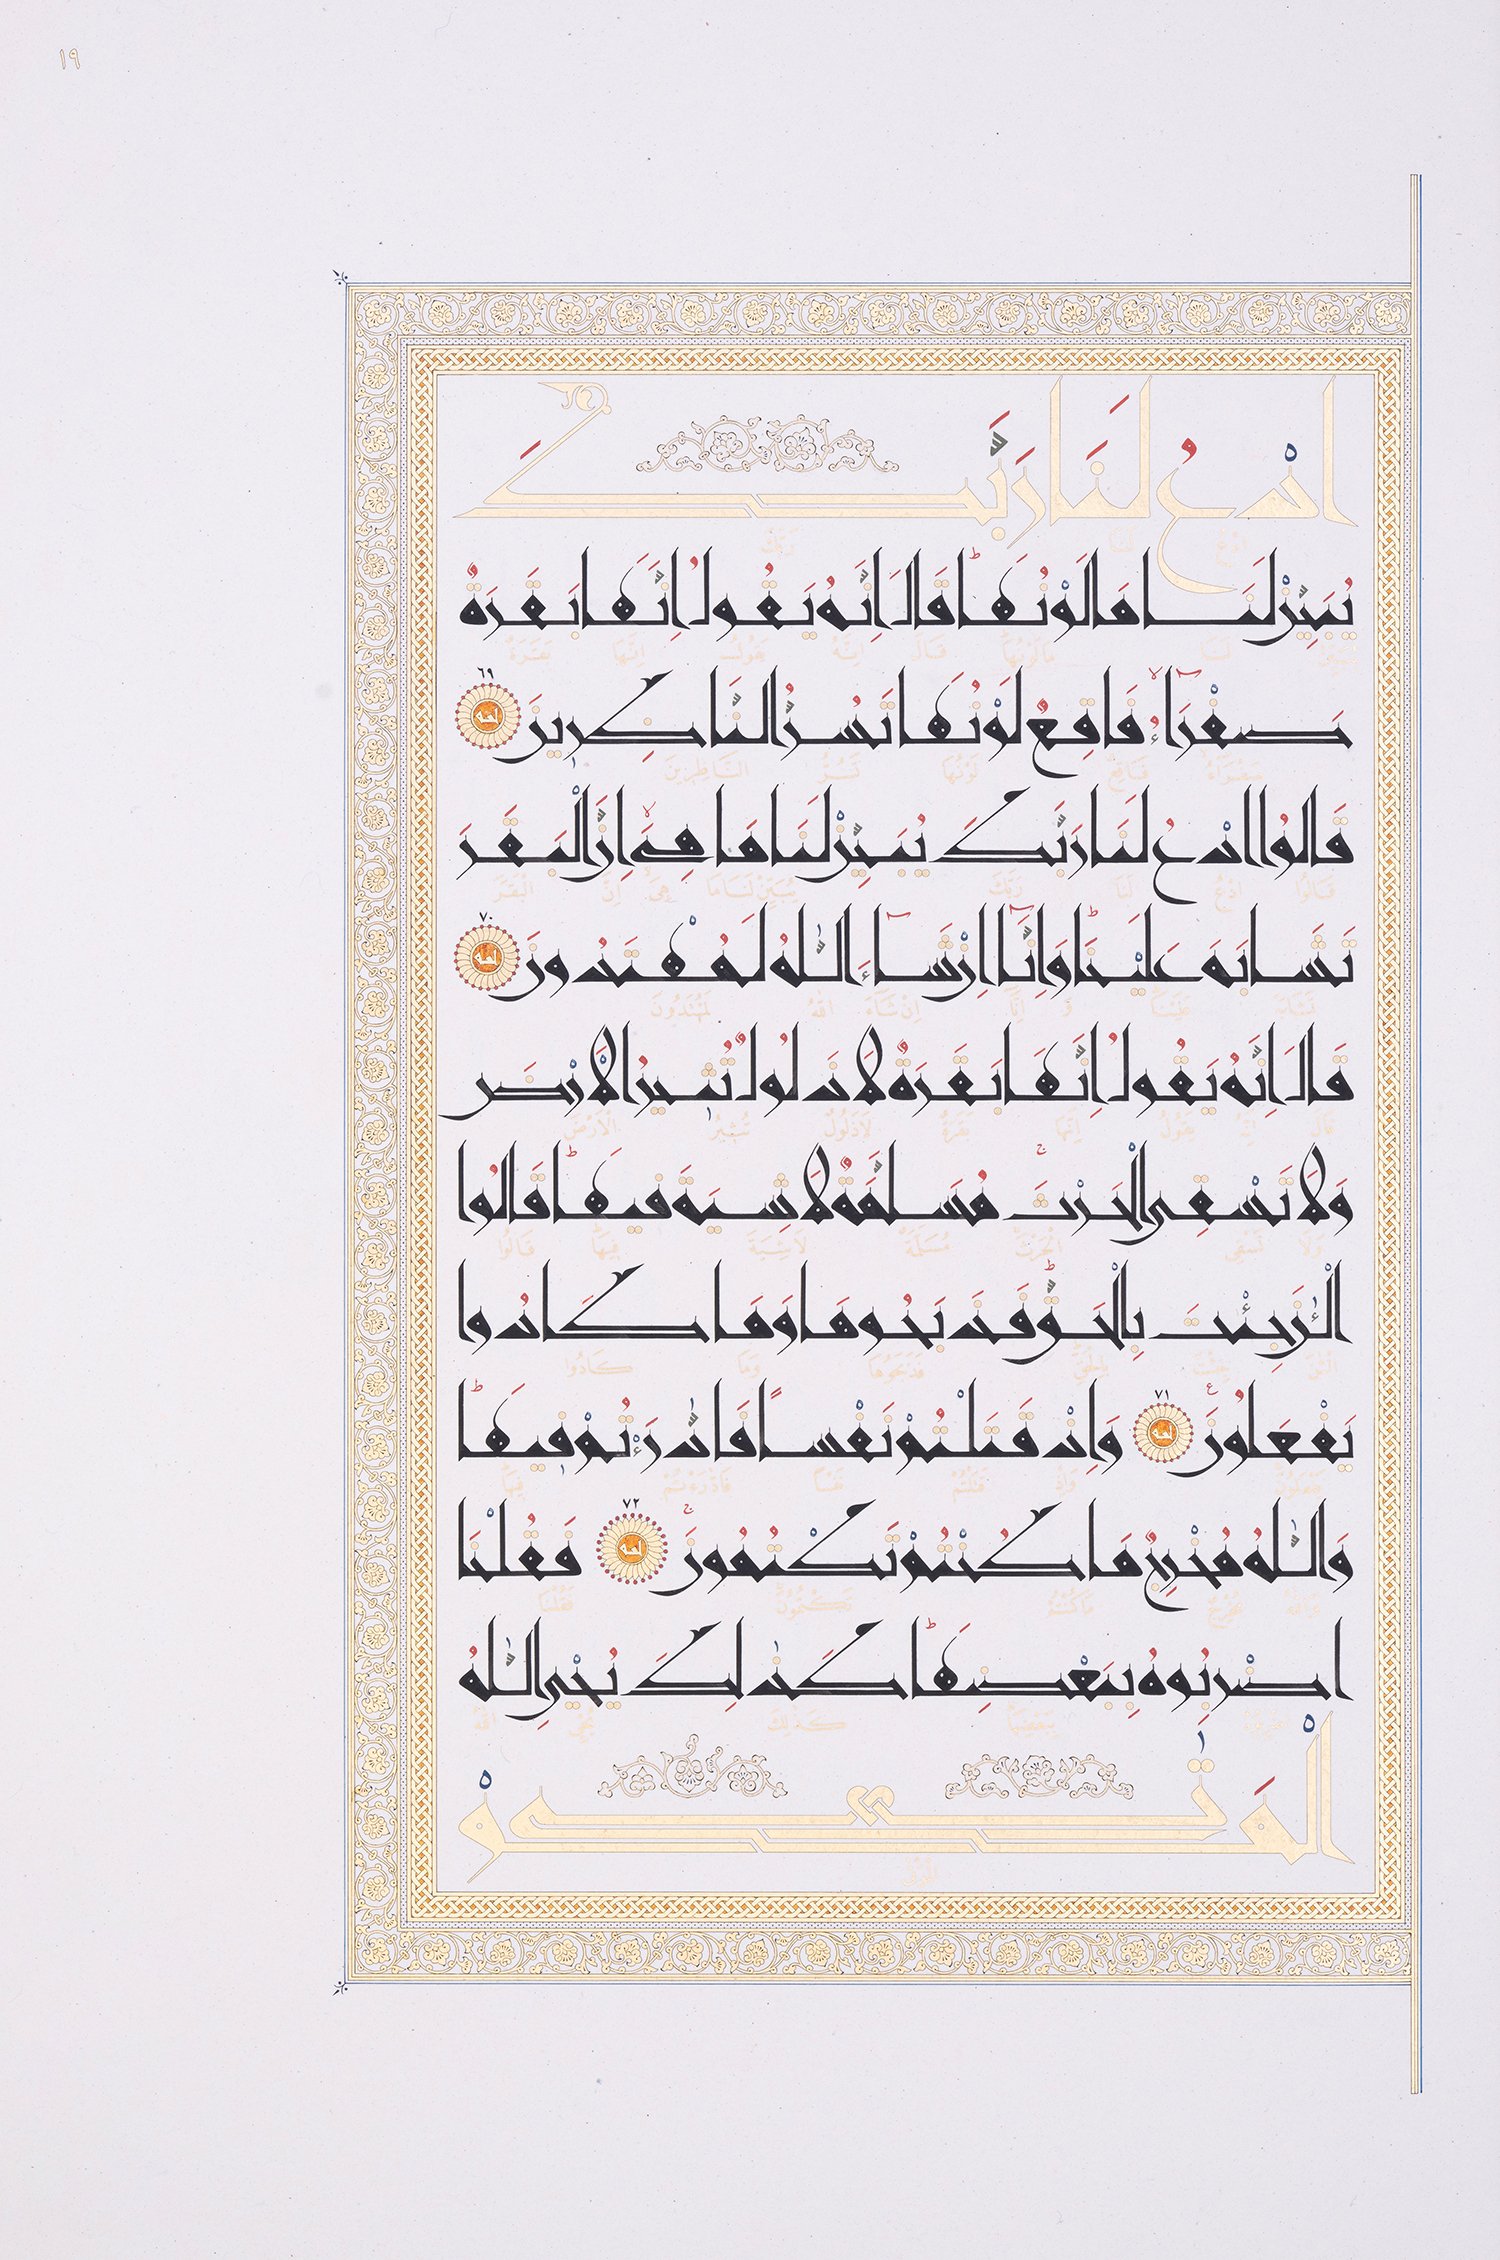 ١٩
ادْعُ لَنَا رَبَّكَ
يُبَيِّنْ لَنَا مَا لَوْنُهَا قَالَ إِنَّهُ يَقُولُ إِنَّهَا بَقَرَةٌ
صَفْرَآءُ فَاقِعٌ لَوْنُهَا تَسُرُّ النَّاظِرِينَ ٦٩
قَالُوا ادْعُ لَنَا رَبَّكَ يُبَيِّنْ لَنَا مَا هِيَ إِنَّ الْبَقَرَ
تَشَابَهَ عَلَيْنَا وَإِنَّآ إِنْ شَآءَ اللّٰهُ لَمُهْتَدُونَ ٧٠
قَالَ إِنَّهُ يَقُولُ إِنَّهَا بَقَرَةٌ لَا ذَلُولٌ تُثِيرُ الْأَرْضَ
وَلَا تَسْقِي الْحَرْثَ مُسَلَّمَةٌ لَا شِيَةَ فِيهَا قَالُوا
الْـٰٔنَ جِئْتَ بِالْحَقِّ فَذَبَحُوهَا وَمَا كَادُوا
يَفْعَلُونَ ٧١ وَإِذْ قَتَلْتُمْ نَفْسًا فَادّٰرَءْتُمْ فِيهَا
وَاللّٰهُ مُخْرِجٌ مَا كُنْتُمْ تَكْتُمُونَ ٧٢ فَقُلْنَا
اضْرِبُوهُ بِبَعْضِهَا كَذٰلِكَ يُحْيِي اللّٰهُ
الْمَوْتٰى